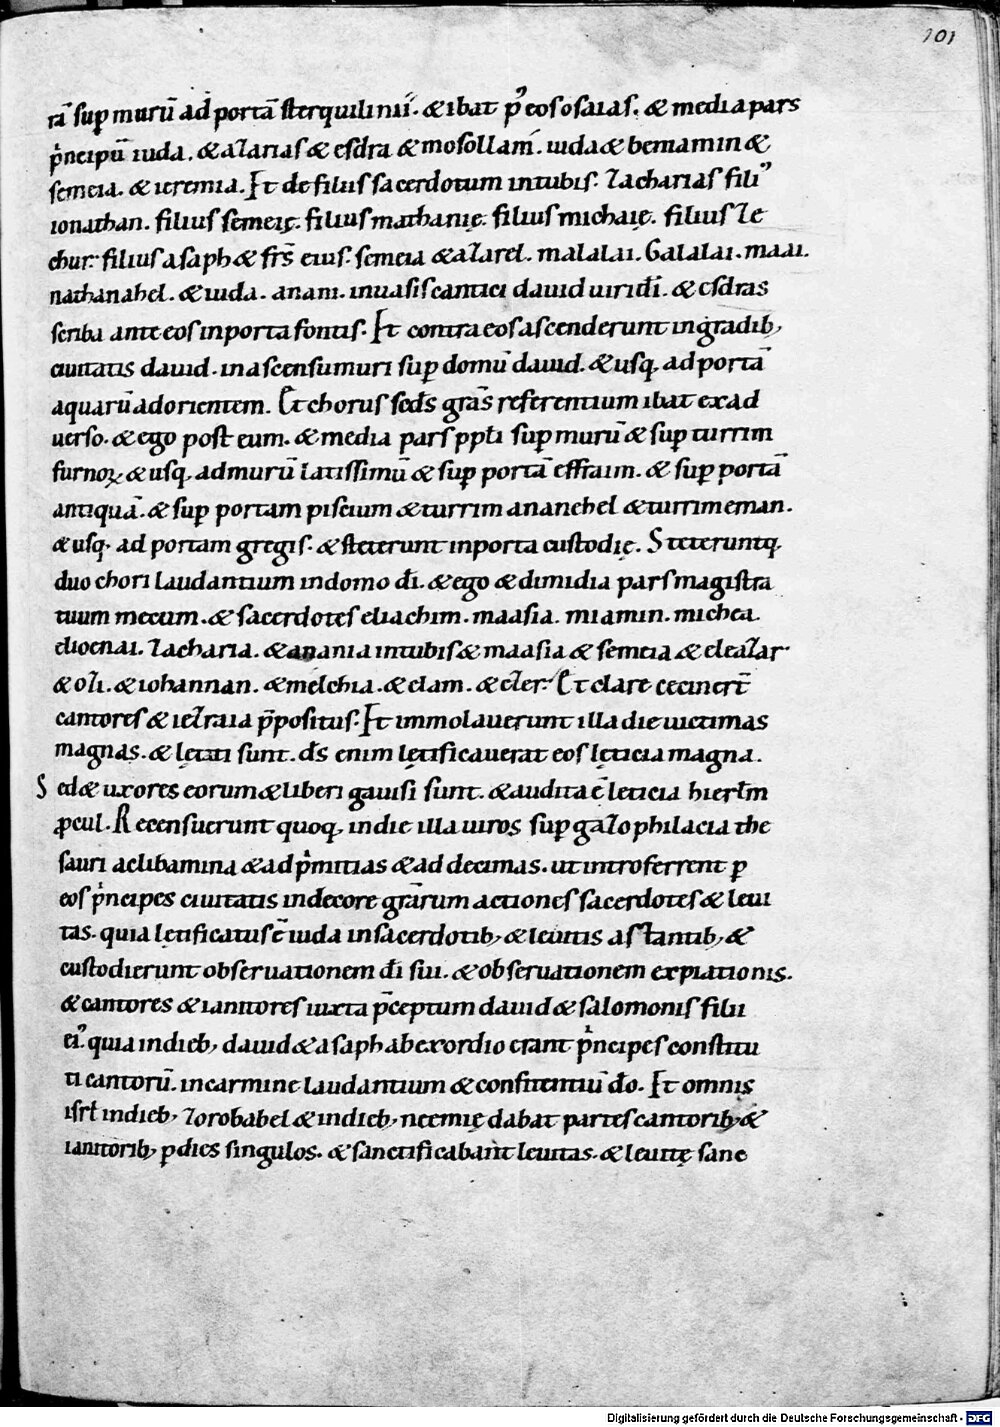 101
rā sup murū ad portā sterquilinii. & ibat p' eos osaias. & media pars
p̍ncipū iuda. & azarias & esdra & mosollam. iuda & beniamin &
semeia. & ieremia. Et de filiis sacerdotum in tubis. Zacharias fili'
ionathan. filius semeię. filius mathanię. filius michaię. filius ze
chur. filius asaph & frs̄ eius. semeia & azarel. malalai. Galalai. maai.
nathanahel. & iuda. anani. in uasis cantici dauid uiri dī. & esdras
scriba ante eos in porta fontis. Et contra eos ascenderunt in gradib;
ciuitatis dauid. in ascensu muri sup domū dauid. & usq; ad portā
aquarū ad orientem. Et chorus scds̄ gras̄ referentium ibat ex ad
uerso. & ego post eum. & media pars ppli̅ sup murū & sup turrim
furnoꝝ & usq; ad murū latissimū & sup portā effraim. & sup portā
antiquā. & sup portam piscium & turrim ananehel & turrim eman.
& usq; ad portam gregis. & steterunt in porta custodię. Steteruntq;
duo chori laudantium in domo dī. & ego & dimidia pars magistra
tuum mecum. & sacerdotes eliachim. maasia. miamin. michea.
elioenai. Zacharia. & anania in tubis & maasia & semeia & eleazar.
& ozi. & iohannan. & melchia. & elam. & ezer. Et clare cecinert̄
cantores & iezraia p̄positus. Et immolauerunt illa die uictimas
magnas. & lętati sunt. ds̄ enim lętificauerat eos lęticia magna.
Sed & uxores eorum & liberi gauisi sunt. & audita ē leticia hierl̄m
ꝓcul. Recensuerunt quoq; in die illa uiros sup gazophilacia the
sauri ad libamina & ad p̍mitias & ad decimas. ut introferrent p
eos p̍ncipes ciuitatis in decore grārum actiones sacerdotes & leui
tas. quia lętificatus ē iuda in sacerdotib; & leuitis astantib; &
custodierunt obseruationem dī sui. & obseruationem expiationis.
& cantores & ianitores iuxta p̄ceptum dauid & salomonis filii
ei'. quia in dieb; dauid & asaph ab exordio erant p̍ncipes constitu
ti cantorū. in carmine laudantium & confitentiū dō. Et omnis
isrl̄ in dieb; Zorobabel & in dieb; neemię dabat partes cantorib; &
ianitorib; p dies singulos. & sanctificabant leuitas. & leuitę sanc
Digitalisierung gefördert durch die Deutsche Forschungsgemeinschaft - DFG